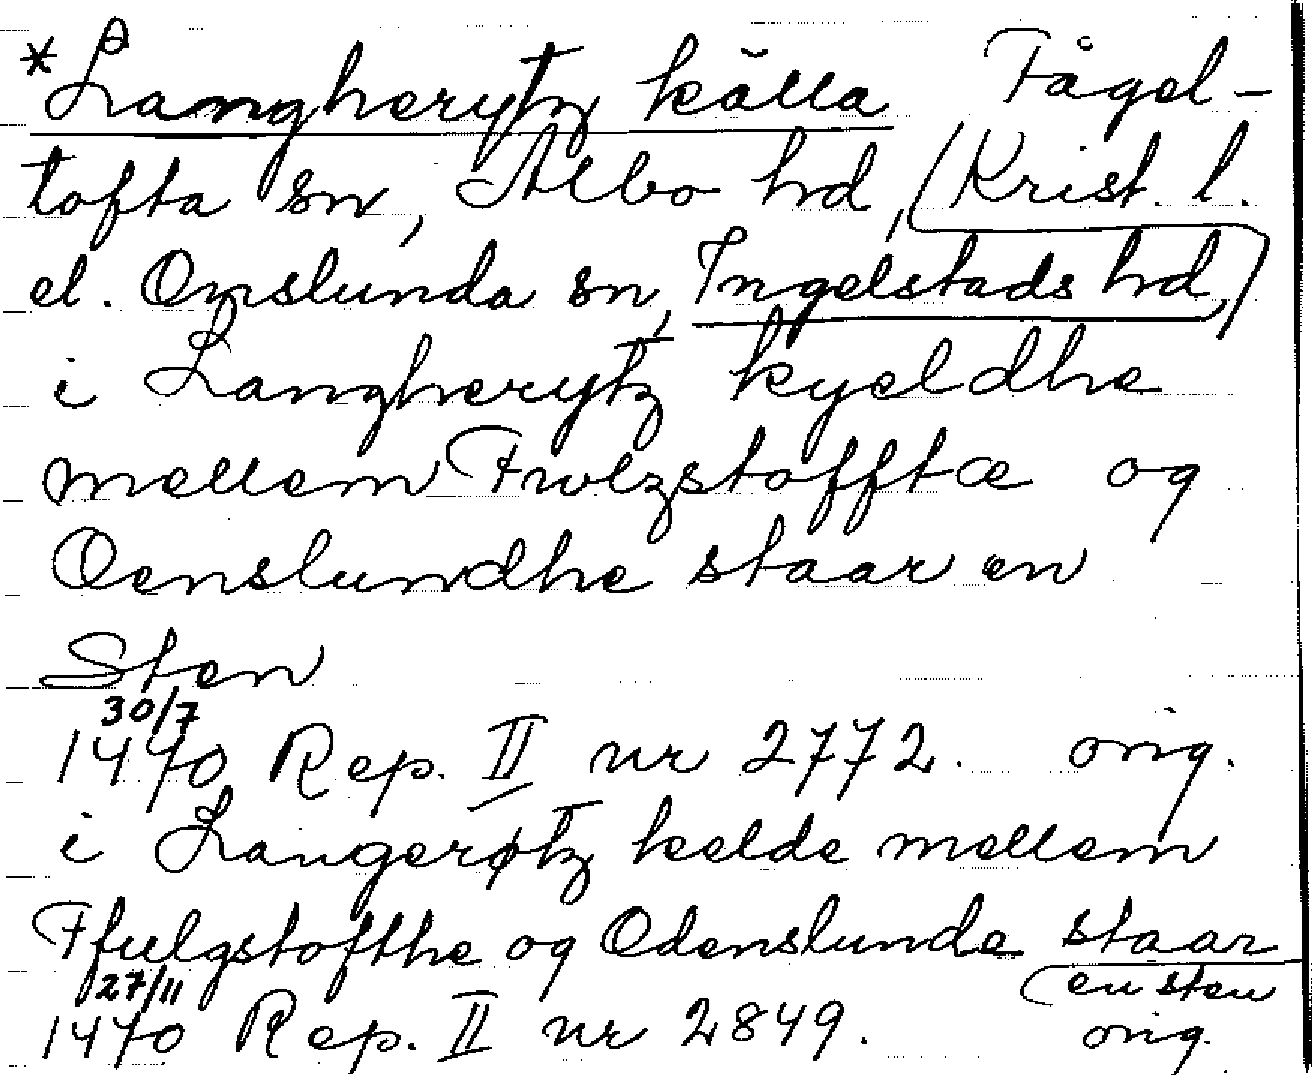 *Langherytz källa Fågel-
tofta sn, Albo hd, (Krist. l.
el. Onslunda sn, Ingelstads hd,)
i Langherytz kyeldhe
mellem Fwlzstofftæ og
Oenslundhe staar en
Sten
30/7
1470 Rep. II nr 2772. orig.
i Langerøtz kelde mellem
Ffulgstofthe og Odenslunde staar
(en sten
27/11
1470 Rep. II nr 2849. orig.